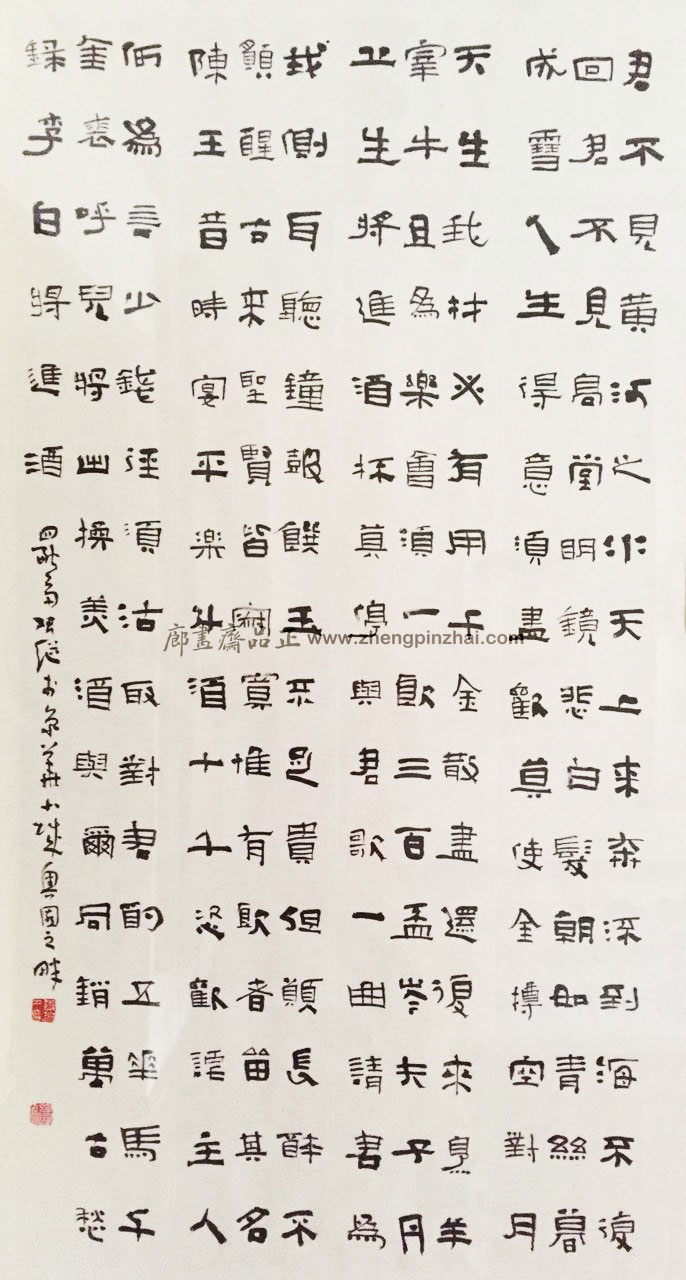 君不見黄河之水天上来奔流到海不復
回君不見高堂明鏡悲白髮朝如青絲暮
成雪人生得意須盡歡莫使金樽空對月
天生我材必有用千金散盡還復來烹羊
宰牛且為樂會須一飲三百盃岑夫子丹
丘生將進酒杯莫停與君歌一曲請君為
我側耳聽鐘鼓饌玉不足貴但願長醉不
願醒古来聖賢皆寂寞惟有飲者留其名
陳王昔時宴平樂斗酒十千恣歡謔主人
何為言少錢徑須沽取對君酌五花馬千
金裘呼兒將出換美酒與爾同銷萬古愁
録李白將進酒
四融齋張継於京華奥園之畔
廊畫齋品正 www.zhengpinzhai.com